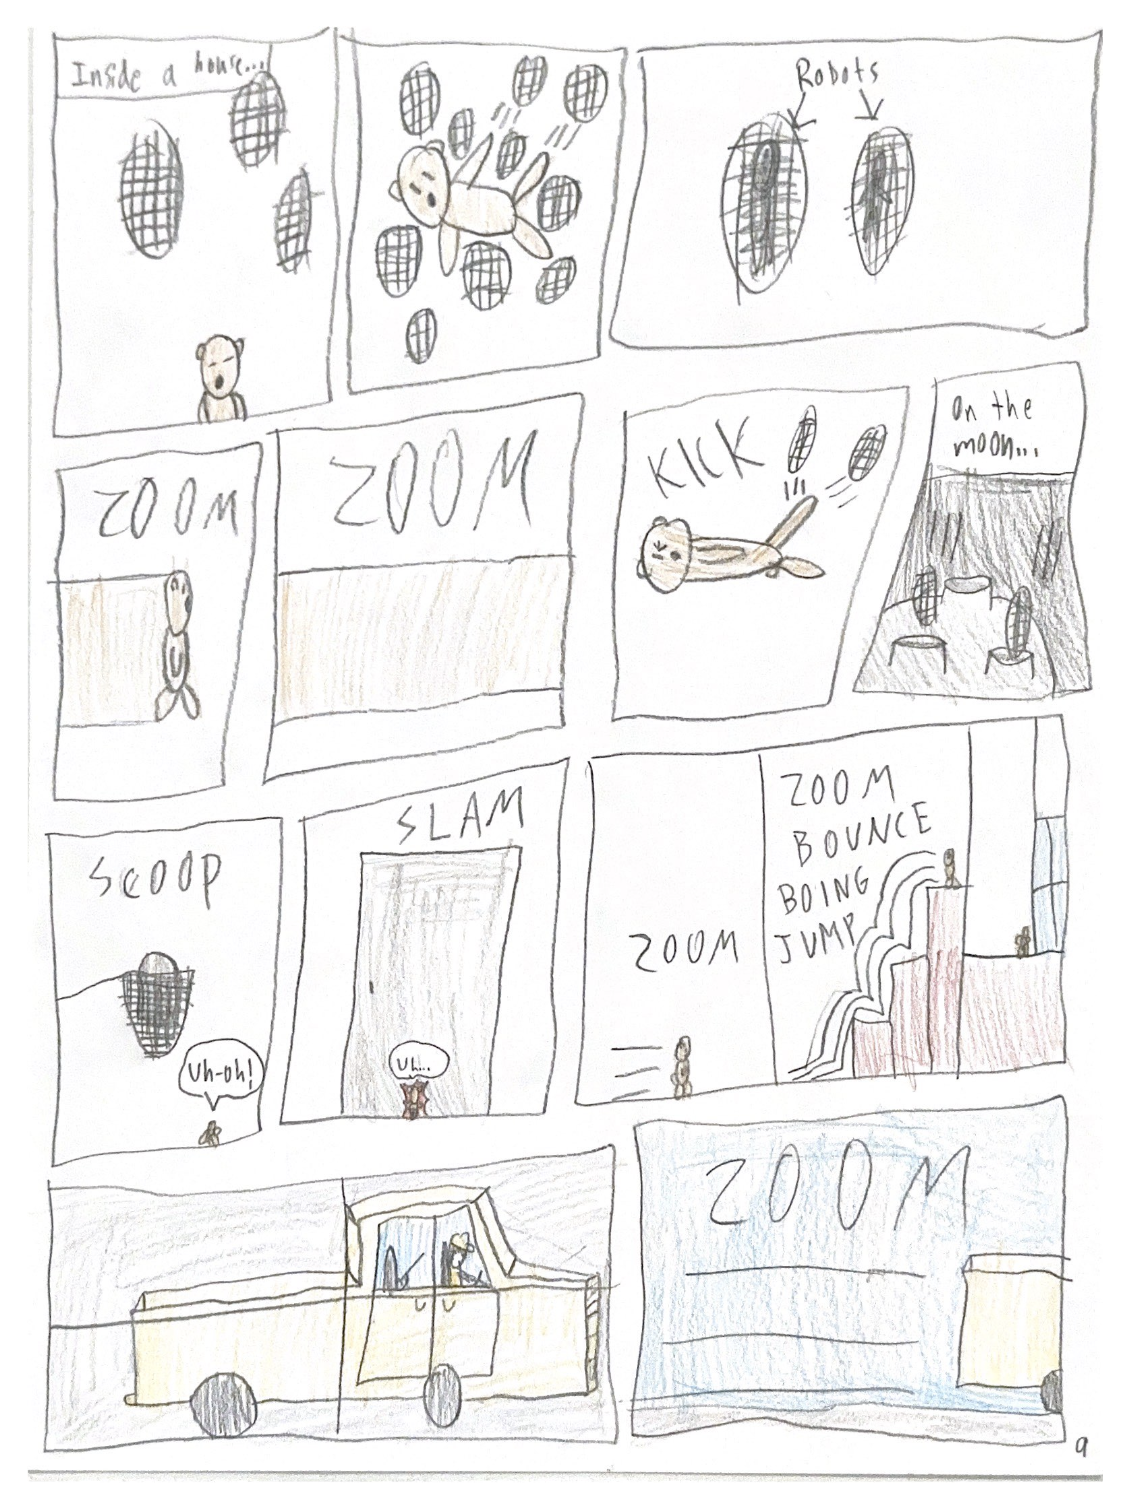 Inside a house...
Robots
ZOOM
ZOOM
KICK
On the
moon...
SCOOP
Uh-oh!
SLAM
Uh...
ZOOM
ZOOM
BOUNCE
BOING
JUMP
ZOOM
9